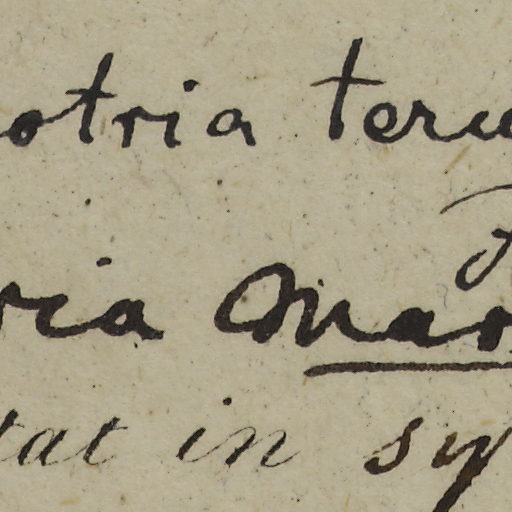 otria teru
ria Mar
tat in sy